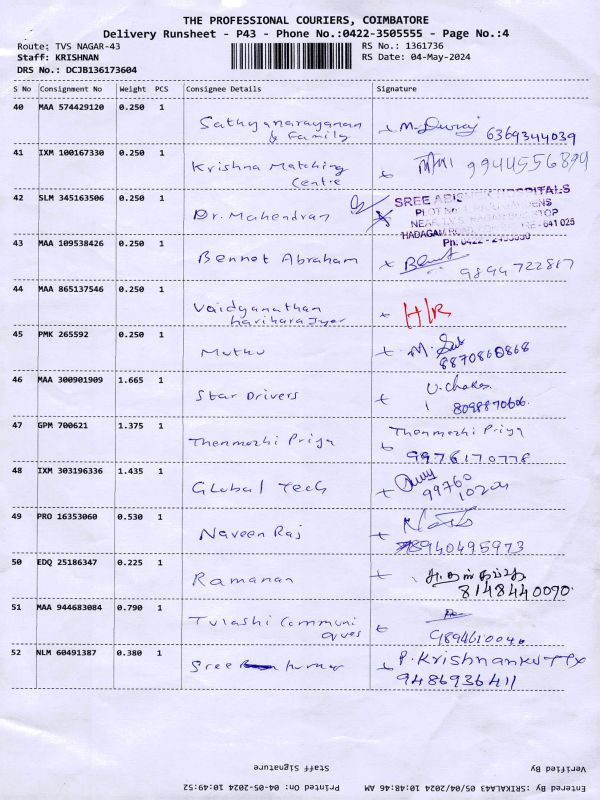 THE PROFESSIONAL COURIERS, COIMBATORE
Delivery Runsheet - P43 - Phone No.:0422-3505555 - Page No.:4
Route: TVS NAGAR-43 RS No.: 1361736
Staff: KRISHNAN RS Date: 04-May-2024
DRS No.: DCJB136173604
S No Consignment No Weight PCS Consignee Details Signature
40 MAA 574429120 0.250 1
Sathyanarayanan
& Family
6369344039
41 IXM 100167330 0.250 1
Krishna Matching
Centre
9944556894
42 SLM 345163506 0.250 1
Dr. Mahendran
SREE
43 MAA 109538426 0.250 1
Bennet Abraham
9894722887
44 MAA 865137546 0.250 1
Vaidyanathan
harihara Iyer
H/R
45 PMK 265592 0.250 1
Muthu
8870860868
46 MAA 300901909 1.665 1
Star Drivers
8098870606
47 GPM 700621 1.375 1
Thenmozhi Priya Thenmozhi Priya
9976170778
48 IXM 303196336 1.435 1
Global Tech
99760
49 PRO 16353060 0.530 1
Naveen Raj
8940495973
50 EDQ 25186347 0.225 1
Ramanan
8148440090
51 MAA 944683084 0.790 1
Tulashi Communi
9894610040
52 NLM 60491387 0.380 1
Sree kumar
P. Krishnankutty
9486936411
Staff Signature Verified By
Entered By : SRIKALA43 05/04/2024 10:48:46 AM Printed On: 04-05-2024 10:49:52